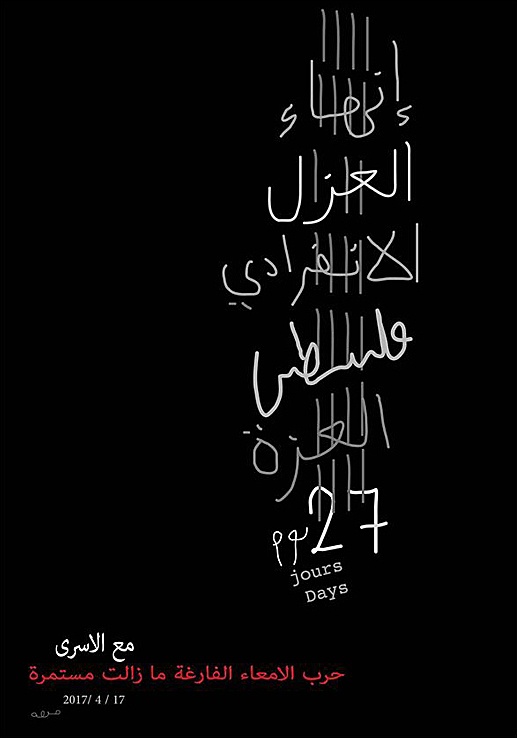 إنهاء
العزل
الانفرادي
فلسطين
العزة
27
يوم
jours
Days
مع الاسرى
حرب الامعاء الفارغة ما زالت مستمرة
2017/ 4 / 17